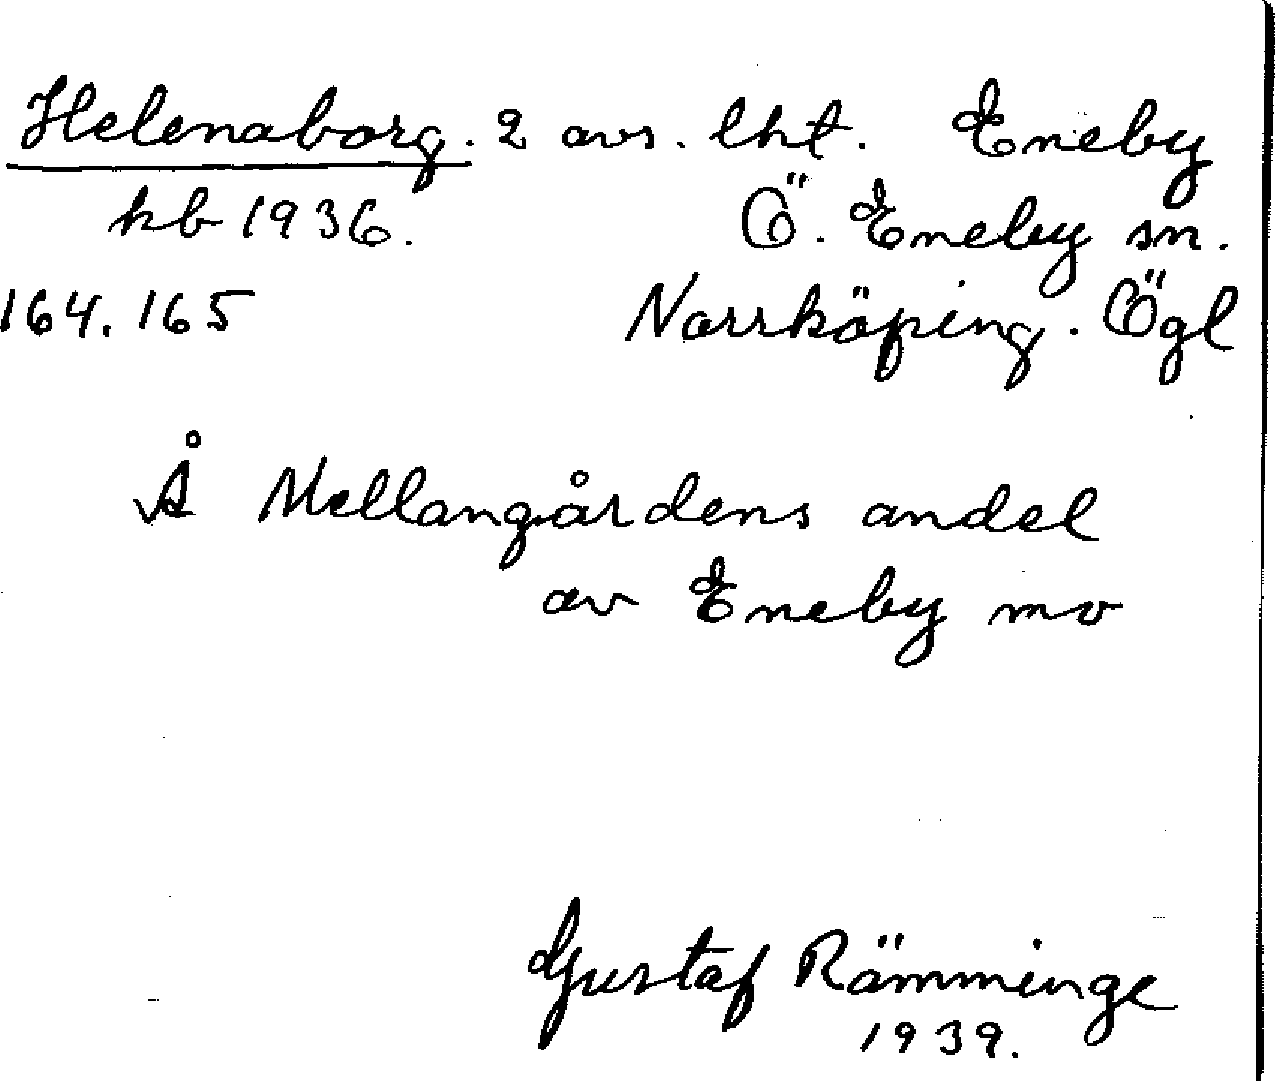 Helenaborg. 2 avs. lht. Eneby
kb 1936. Ö. Eneby sn.
164. 165 Norrköping. Ögl
Å Mellangårdens andel
av Eneby mo
Gustaf Rämminge
1939.